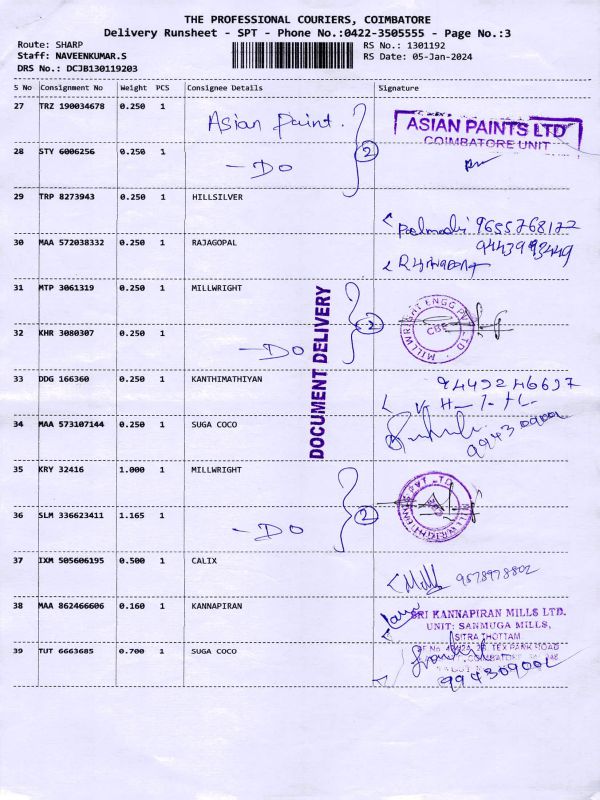 THE PROFESSIONAL COURIERS, COIMBATORE
Delivery Runsheet - SPT - Phone No.:0422-3505555 - Page No.:3
Route: SHARP
RS No.: 1301192
Staff: NAVEENKUMAR.S
RS Date: 05-Jan-2024
DRS No.: DCJB130119203
S No Consignment No Weight PCS Consignee Details Signature
27 TRZ 190034678 0.250 1 Asian Paint.
ASIAN PAINTS LTD
COIMBATORE UNIT
28 STY 6006256 0.250 1 - DO 2
29 TRP 8273943 0.250 1 HILLSILVER
9655268122
30 MAA 572038332 0.250 1 RAJAGOPAL
9443993449
31 MTP 3061319 0.250 1 MILLWRIGHT
MILLWRIGHT ENGG PVT-LTD
CBE
32 KHR 3080307 0.250 1 - DO 2
DOCUMENT DELIVERY
33 DDG 166360 0.250 1 KANTHIMATHIYAN
9449246697
34 MAA 573107144 0.250 1 SUGA COCO
994309002
35 KRY 32416 1.000 1 MILLWRIGHT
36 SLM 336623411 1.165 1 - DO 2
37 IXM 505606195 0.500 1 CALIX
9578978802
38 MAA 862466606 0.160 1 KANNAPIRAN
SRI KANNAPIRAN MILLS LTD.
UNIT: SANMUGA MILLS,
SITRA THOTTAM
TEX PARK ROAD
COIMBATORE
39 TUT 6663685 0.700 1 SUGA COCO
994309002